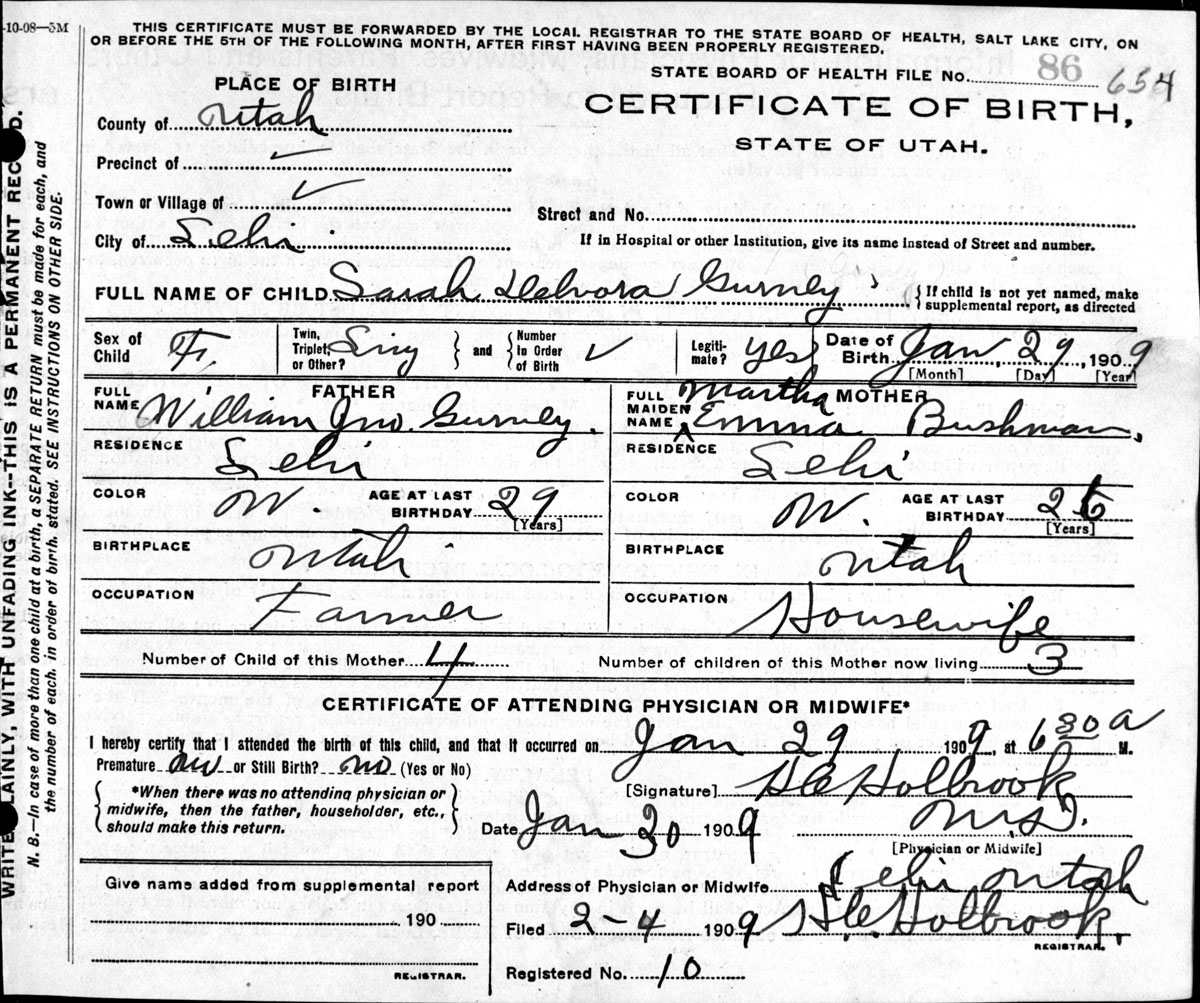 -10-08—5M
THIS CERTIFICATE MUST BE FORWARDED BY THE LOCAL REGISTRAR TO THE STATE BOARD OF HEALTH, SALT LAKE CITY, ON
OR BEFORE THE 5TH OF THE FOLLOWING MONTH, AFTER FIRST HAVING BEEN PROPERLY REGISTERED.
STATE BOARD OF HEALTH FILE No. 86 654
PLACE OF BIRTH
CERTIFICATE OF BIRTH,
STATE OF UTAH.
County of Utah
Precinct of ✓
Town or Village of ✓
Street and No.
City of Lehi
If in Hospital or other Institution, give its name instead of Street and number.
FULL NAME OF CHILD Sarah Delvora Gurney { If child is not yet named, make
supplemental report, as directed
Sex of Child F. Twin, Triplet, or Other? Sing } and { Number In Order of Birth ✓ Legiti- mate? yes Date of Birth Jan 29, 1909
[Month] [Day] [Year]
FATHER
MOTHER
FULL NAME William Jno. Gurney.
FULL MAIDEN NAME Martha Emma Bushman.
RESIDENCE Lehi
RESIDENCE Lehi
COLOR W. AGE AT LAST BIRTHDAY 29 [Years]
COLOR W. AGE AT LAST BIRTHDAY 26 [Years]
BIRTHPLACE Utah
BIRTHPLACE Utah
OCCUPATION Farmer
OCCUPATION Housewife
Number of Child of this Mother 4
Number of children of this Mother now living 3
CERTIFICATE OF ATTENDING PHYSICIAN OR MIDWIFE*
I hereby certify that I attended the birth of this child, and that it occurred on Jan 29 1909, at 6 30 A M.
Premature or Still Birth? no (Yes or No)
[Signature] Holbrook
M.D.
{ *When there was no attending physician or
midwife, then the father, householder, etc.,
should make this return. }
Date Jan 30 1909
[Physician or Midwife]
Give name added from supplemental report
190
REGISTRAR.
Address of Physician or Midwife Lehi Utah
Filed 2-4 1909 Holbrook.
REGISTRAR.
Registered No. 10
WRITE PLAINLY, WITH UNFADING INK--THIS IS A PERMANENT RECORD.
N. B.—In case of more than one child at a birth, a SEPARATE RETURN must be made for each, and
the number of each, in order of birth, stated. SEE INSTRUCTIONS ON OTHER SIDE.